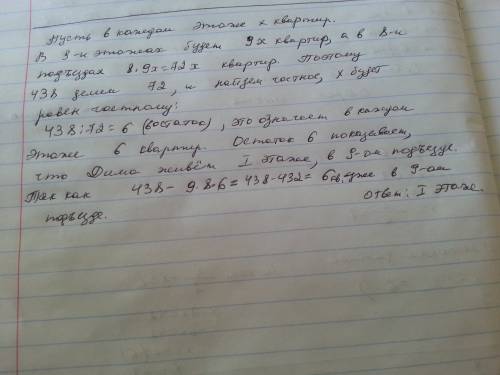 Пусть в каждом этаже x квартир.
В 9-и этажах будет 9x квартир, а в 8-и
подъездах 8·9x=72x квартир. Поэтому
438 делем 72, и найдем частное, x будет
равен частному:
438:72=6 (6остаток), это означает в каждом
этаже 6 квартир. Остаток 6 показывает,
что Дима живёт I этаже, в 9-ом подъезде.
Так как 438-9·8·6=438-432=6кв, уже в 9-ом
подъезде. Ответ: I этаже.